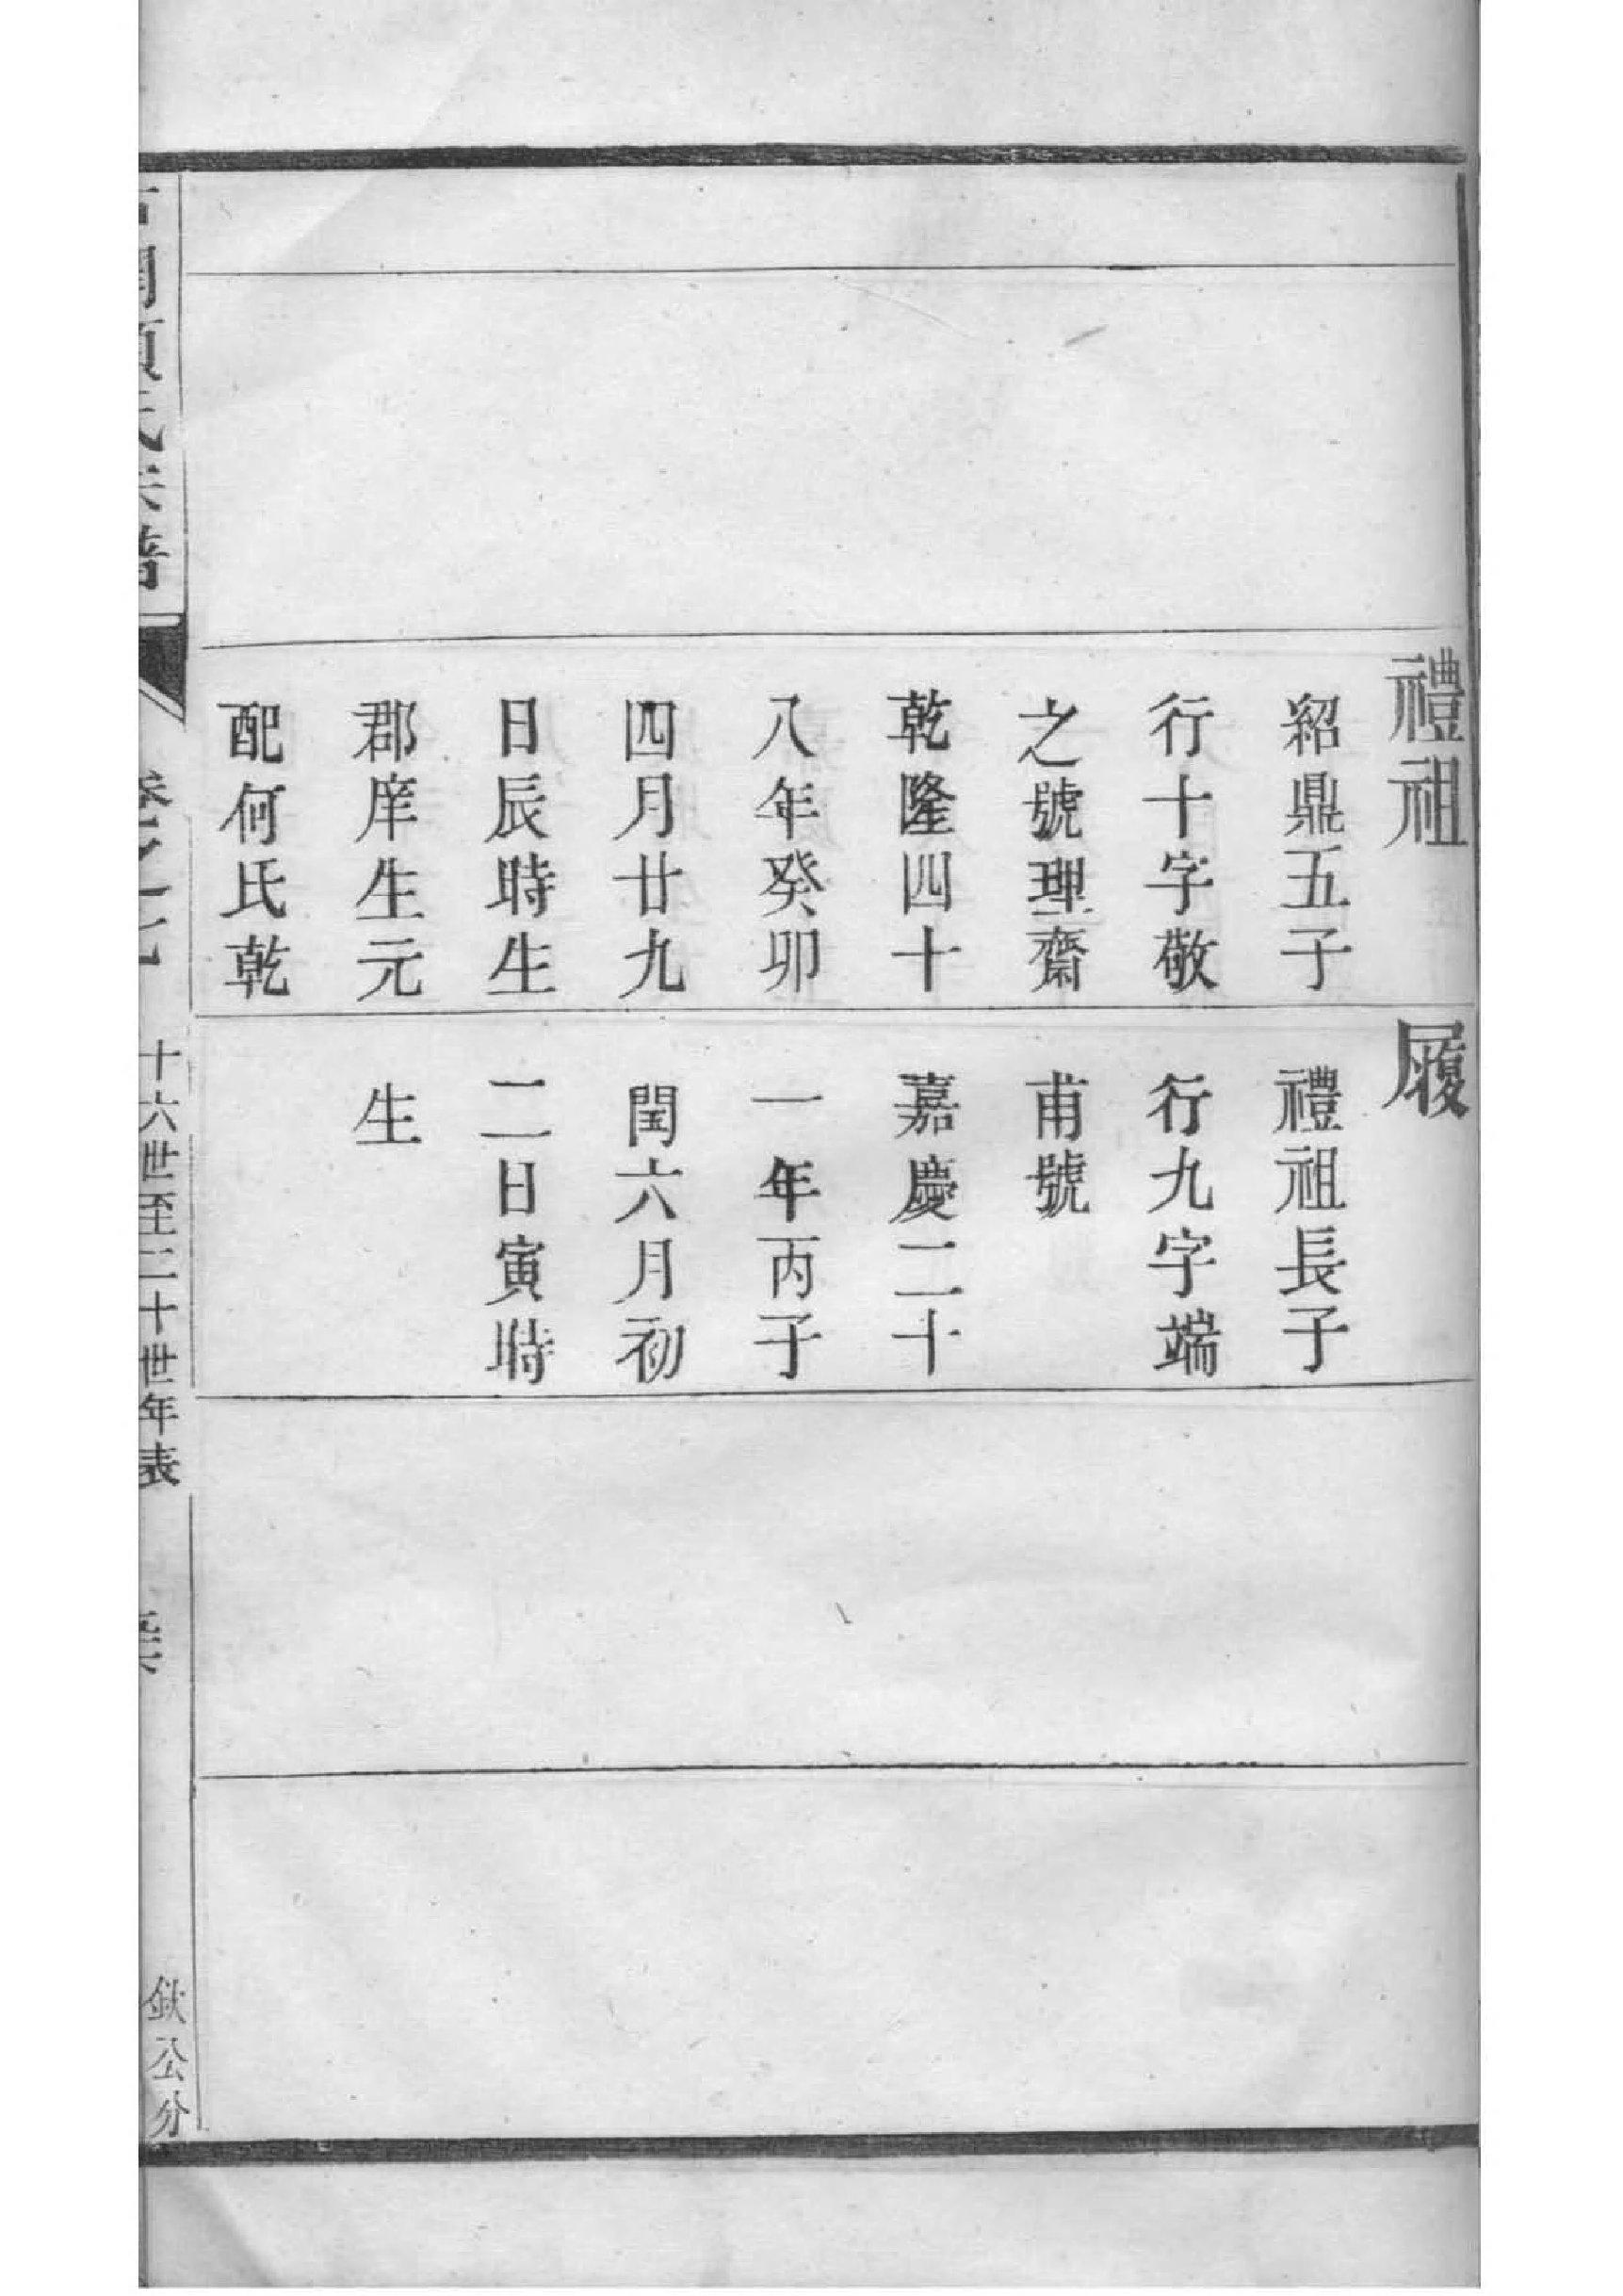 禮祖
紹鼎五子
行十字敬
之號理齋
乾隆四十
八年癸卯
四月廿九
日辰時生
郡庠生元
配何氏乾
履
禮祖長子
行九字端
甫號
嘉慶二十
一年丙子
閏六月初
二日寅時
生
氏宗譜
卷之七
十六世至二十世年表
欽公分